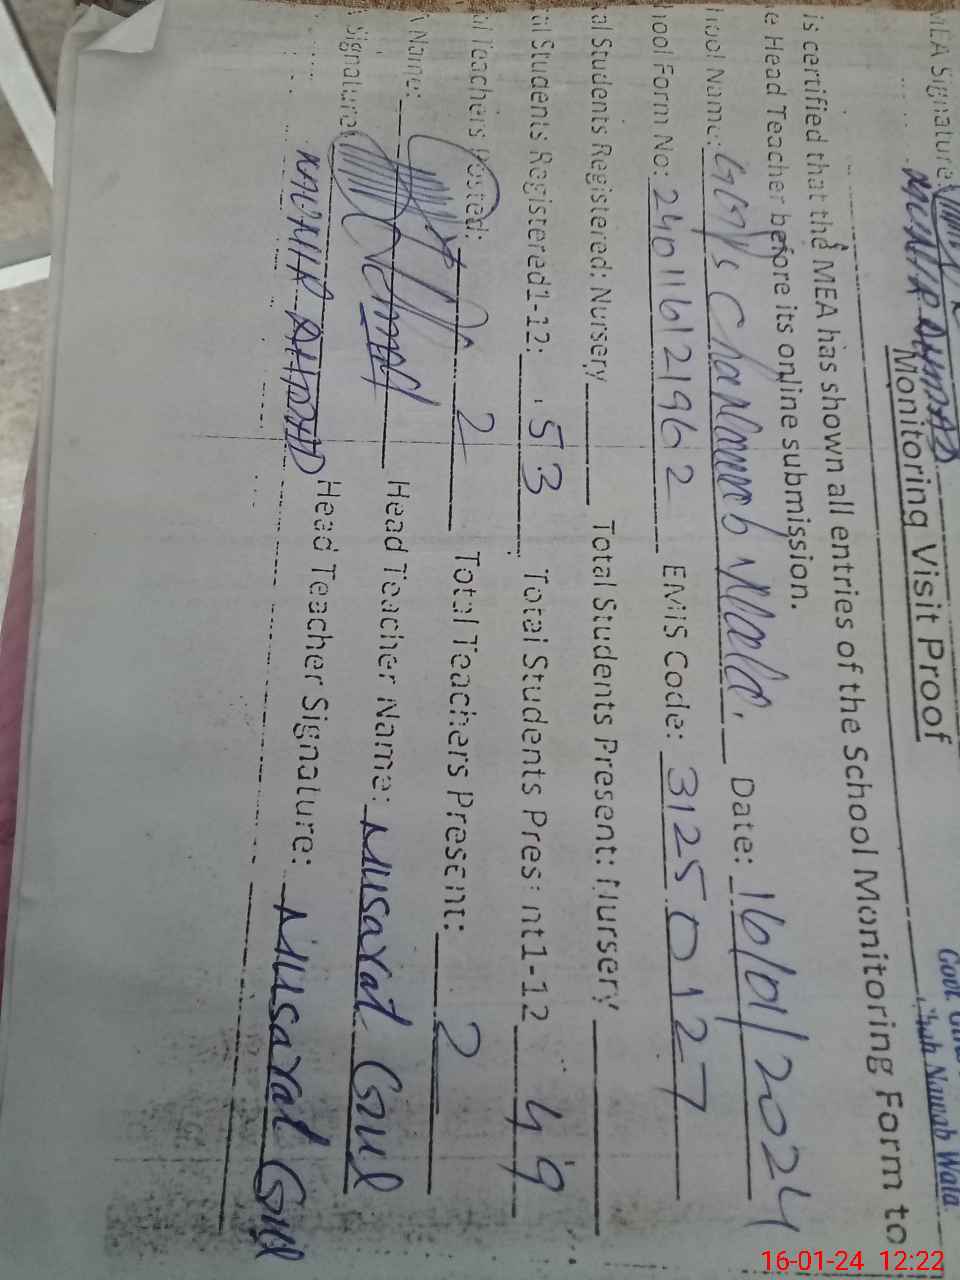 MEA Signature
MUNIR AHMAD
Govt.
Chah Nawab Wala
Monitoring Visit Proof
is certified that the MEA has shown all entries of the School Monitoring Form to
e Head Teacher before its online submission.
hool Name: GGPS Chah Nawab Wala. Date: 16/01/2024
hool Form No: 240116121962 EMIS Code: 31250127
al Students Registered: Nursery Total Students Present: Nursery
al Students Registered1-12: 53 Total Students Present1-12 49
al Teachers Posted: 2 Total Teachers Present: 2
A Name: Head Teacher Name: Musarat Gul
Signature Head Teacher Signature: Musarat Gul
MUNIR AHMAD
16-01-24 12:22